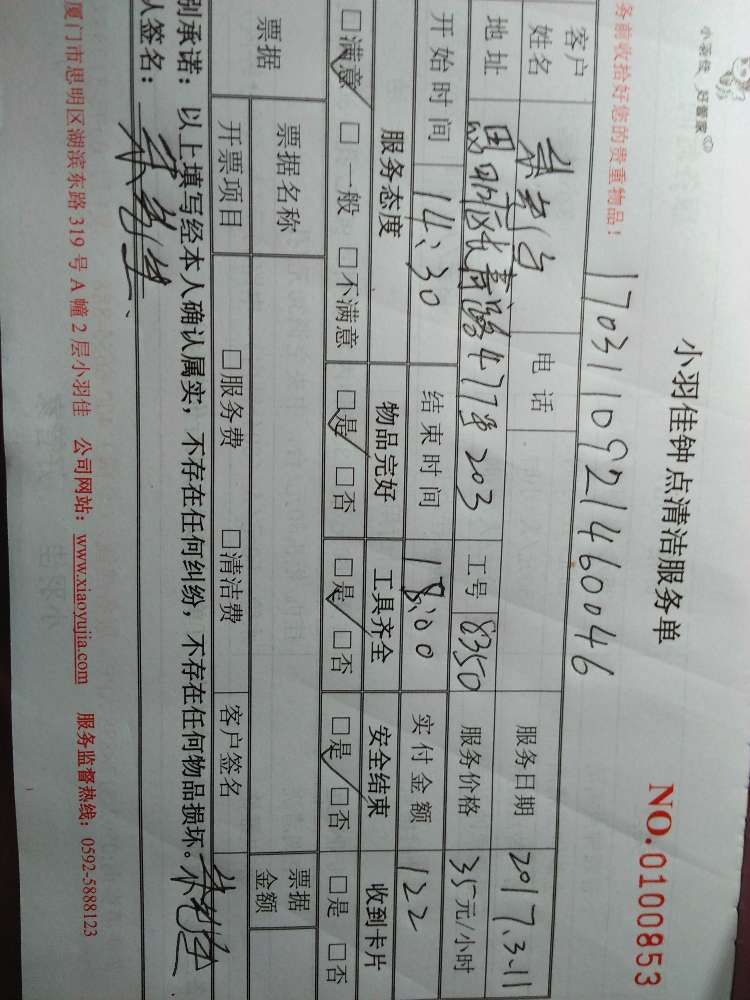 小羽佳 好管家
小羽佳钟点清洁服务单
NO.0100853
务前收拾好您的贵重物品！
17031109214460046
客户姓名 电话 服务日期 2017.3.11
地址 思明区长青路477号203 工号 8350 服务价格 35元/小时
开始时间 14:30 结束时间 18:00 实付金额 122
服务态度 物品完好 工具齐全 安全结束 收到卡片
□满意 □一般 □不满意 □是 □否 □是 □否 □是 □否 □是 □否
票据 票据名称 票据金额
开票项目 □服务费 □清洁费 客户签名
别承诺：以上填写经本人确认属实，不存在任何纠纷，不存在任何物品损坏。
人签名：
厦门市思明区湖滨东路319号A幢2层小羽佳 公司网站：www.xiaoyujia.com 服务监督热线：0592-5888123